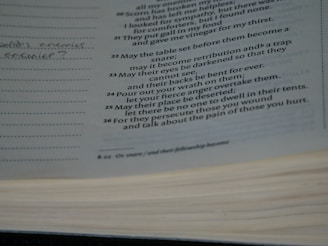 all my enemies
20 Scorn has broken my
and has left me helpless;
I looked for sympathy, but there was
for comforters, but I found none.
21 They put gall in my food
and gave me vinegar for my thirst.
22 May the table set before them become a
snare;
may it become retribution and a trap.
23 May their eyes be darkened so that they
cannot see,
and their backs be bent for ever.
24 Pour out your wrath on them;
let your fierce anger overtake them.
25 May their place be deserted;
let there be no one to dwell in their tents.
26 For they persecute those you wound
and talk about the pain of those you hurt.
b 22 Or snare / and their fellowship become
enemies